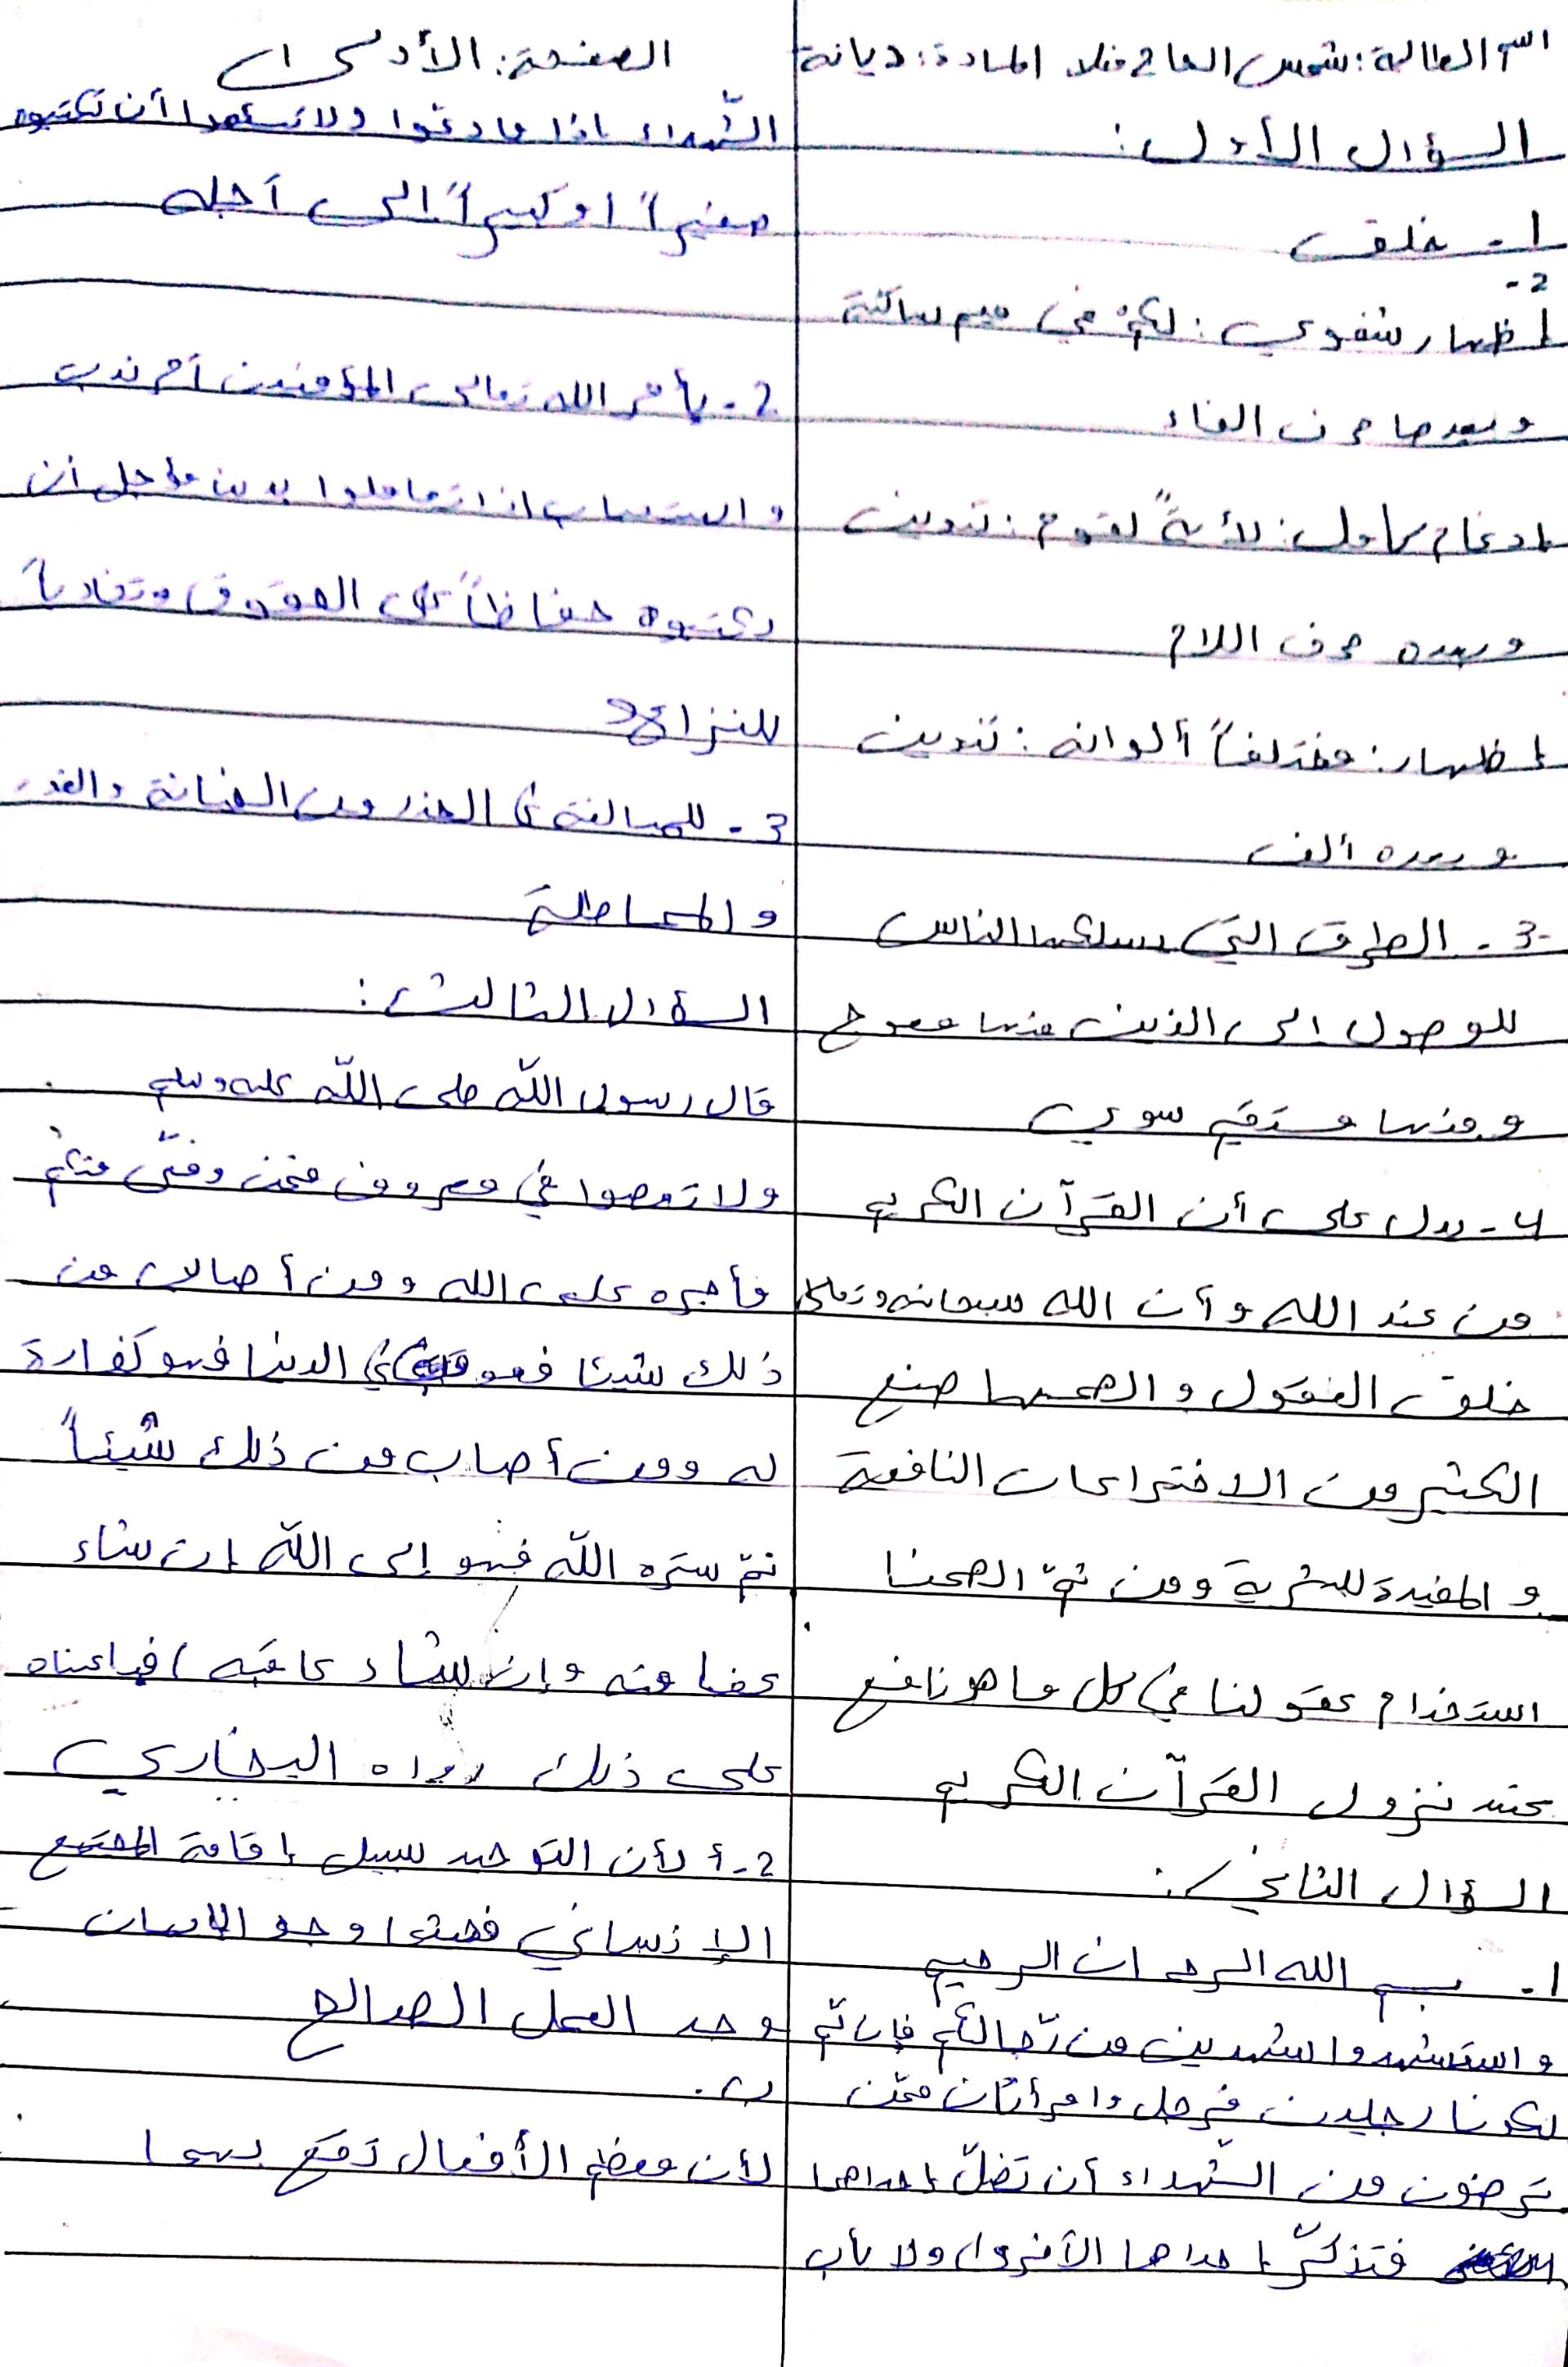 اسم الطالبة: شمس الحاج المادة: ديانة
الصفحة: الأولى
السؤال الأول:
1- خلق
2-
إظهار شفوي: لكم في ميم ساكنة
وبعدها حرف الفاء
إدغام كامل: لأيةً لقوم: تنوين
وبعده حرف اللام
إظهار: مختلفاً ألوانه: تنوين
وبعده ألف
3- الطرق التي يسلكها الناس
للوصول إلى الدين منها معوج
ومنها مستقيم سوي
4- يدل على أن القرآن الكريم
من عند الله وأن الله سبحانه وتعالى
خلق العقول وألهمها صنع
الكثير من الاختراعات النافعة
والمفيدة للبشرية ومن ثمّ ألهمنا
استخدام عقولنا في كل ما هو نافع
عند نزول القرآن الكريم
السؤال الثاني:
1- بسم الله الرحمان الرحيم
واستشهدوا شهدين من رّجالكم فإن لّم
يكونا رجلين فرجل وامرأتان ممّن
ترضون من الشّهداء أن تضلّ إحداهما
فتذكّر إحداهما الأخرى ولا يأب
الشّهداء إذا ما دعوا ولا تسئموا أن تكتبوه
صغيراً أو كبيراً إلى أجله
2- يأمر الله تعالى المؤمنين أمر ندب
واستحباب إذا تعاملوا بدين مؤجل أن
يكتبوه حفاظاً على الحقوق وتفادياً
للنزاع
3- للمبالغة في الحذر من الخيانة والغدر
والمماطلة
السؤال الثالث:
قال رسول اللّه صلى اللّه عليه وسلم
ولا تعصوا في معروف فمن وفىّ منكم
فأجره على الله ومن أصاب من
ذلك شيئا فعوقب في الدنيا فهو كفارة
له ومن أصاب من ذلك شيئاً
ثمّ ستره اللّه فهو إلى اللّه إن شاء
عفا عنه وإن شاء عاقبه) فبايعناه
على ذلك رواه البخاري
2- أ لأن التوحيد سبيل إقامة المجتمع
الإنساني فمتى وجد الإيمان
وجد العمل الصالح
ب.
لأن معظم الأفعال تقع بهما